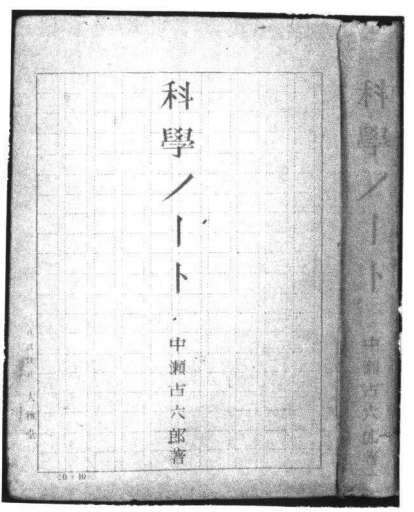 科學ノート
中瀬古六郎著
科學ノート
中瀬古六郎著
20×10